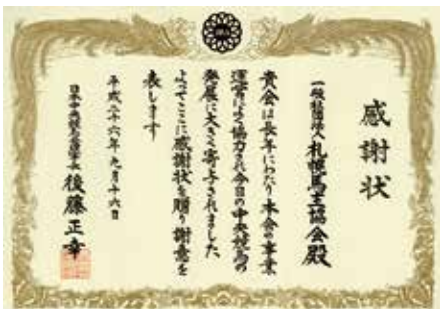 感謝状
一般社団法人 札幌馬主協会殿
貴会は長年にわたり本会の事業
運営によく協力され今日の中央競馬の
発展に大きく寄与されました
よってここに感謝状を贈り謝意を
表します
平成二十六年九月十六日
日本中央競馬会理事長 後藤正幸